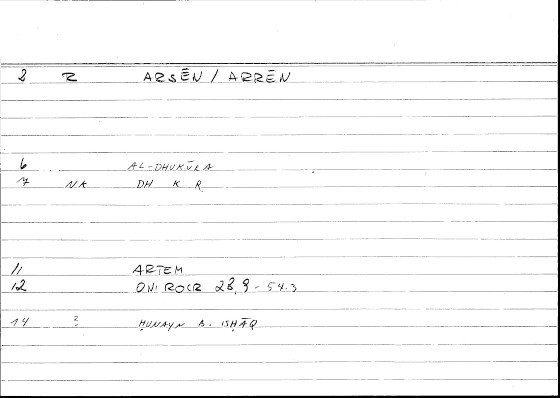 2 R ARSĒN / ARRĒN
6 AL-DHUKŪRA
7 NK DH K R
11 ARTEM
12 ONIROCR 28,9-54.3
14 ? ḤUNAYN B. ISḤĀQ